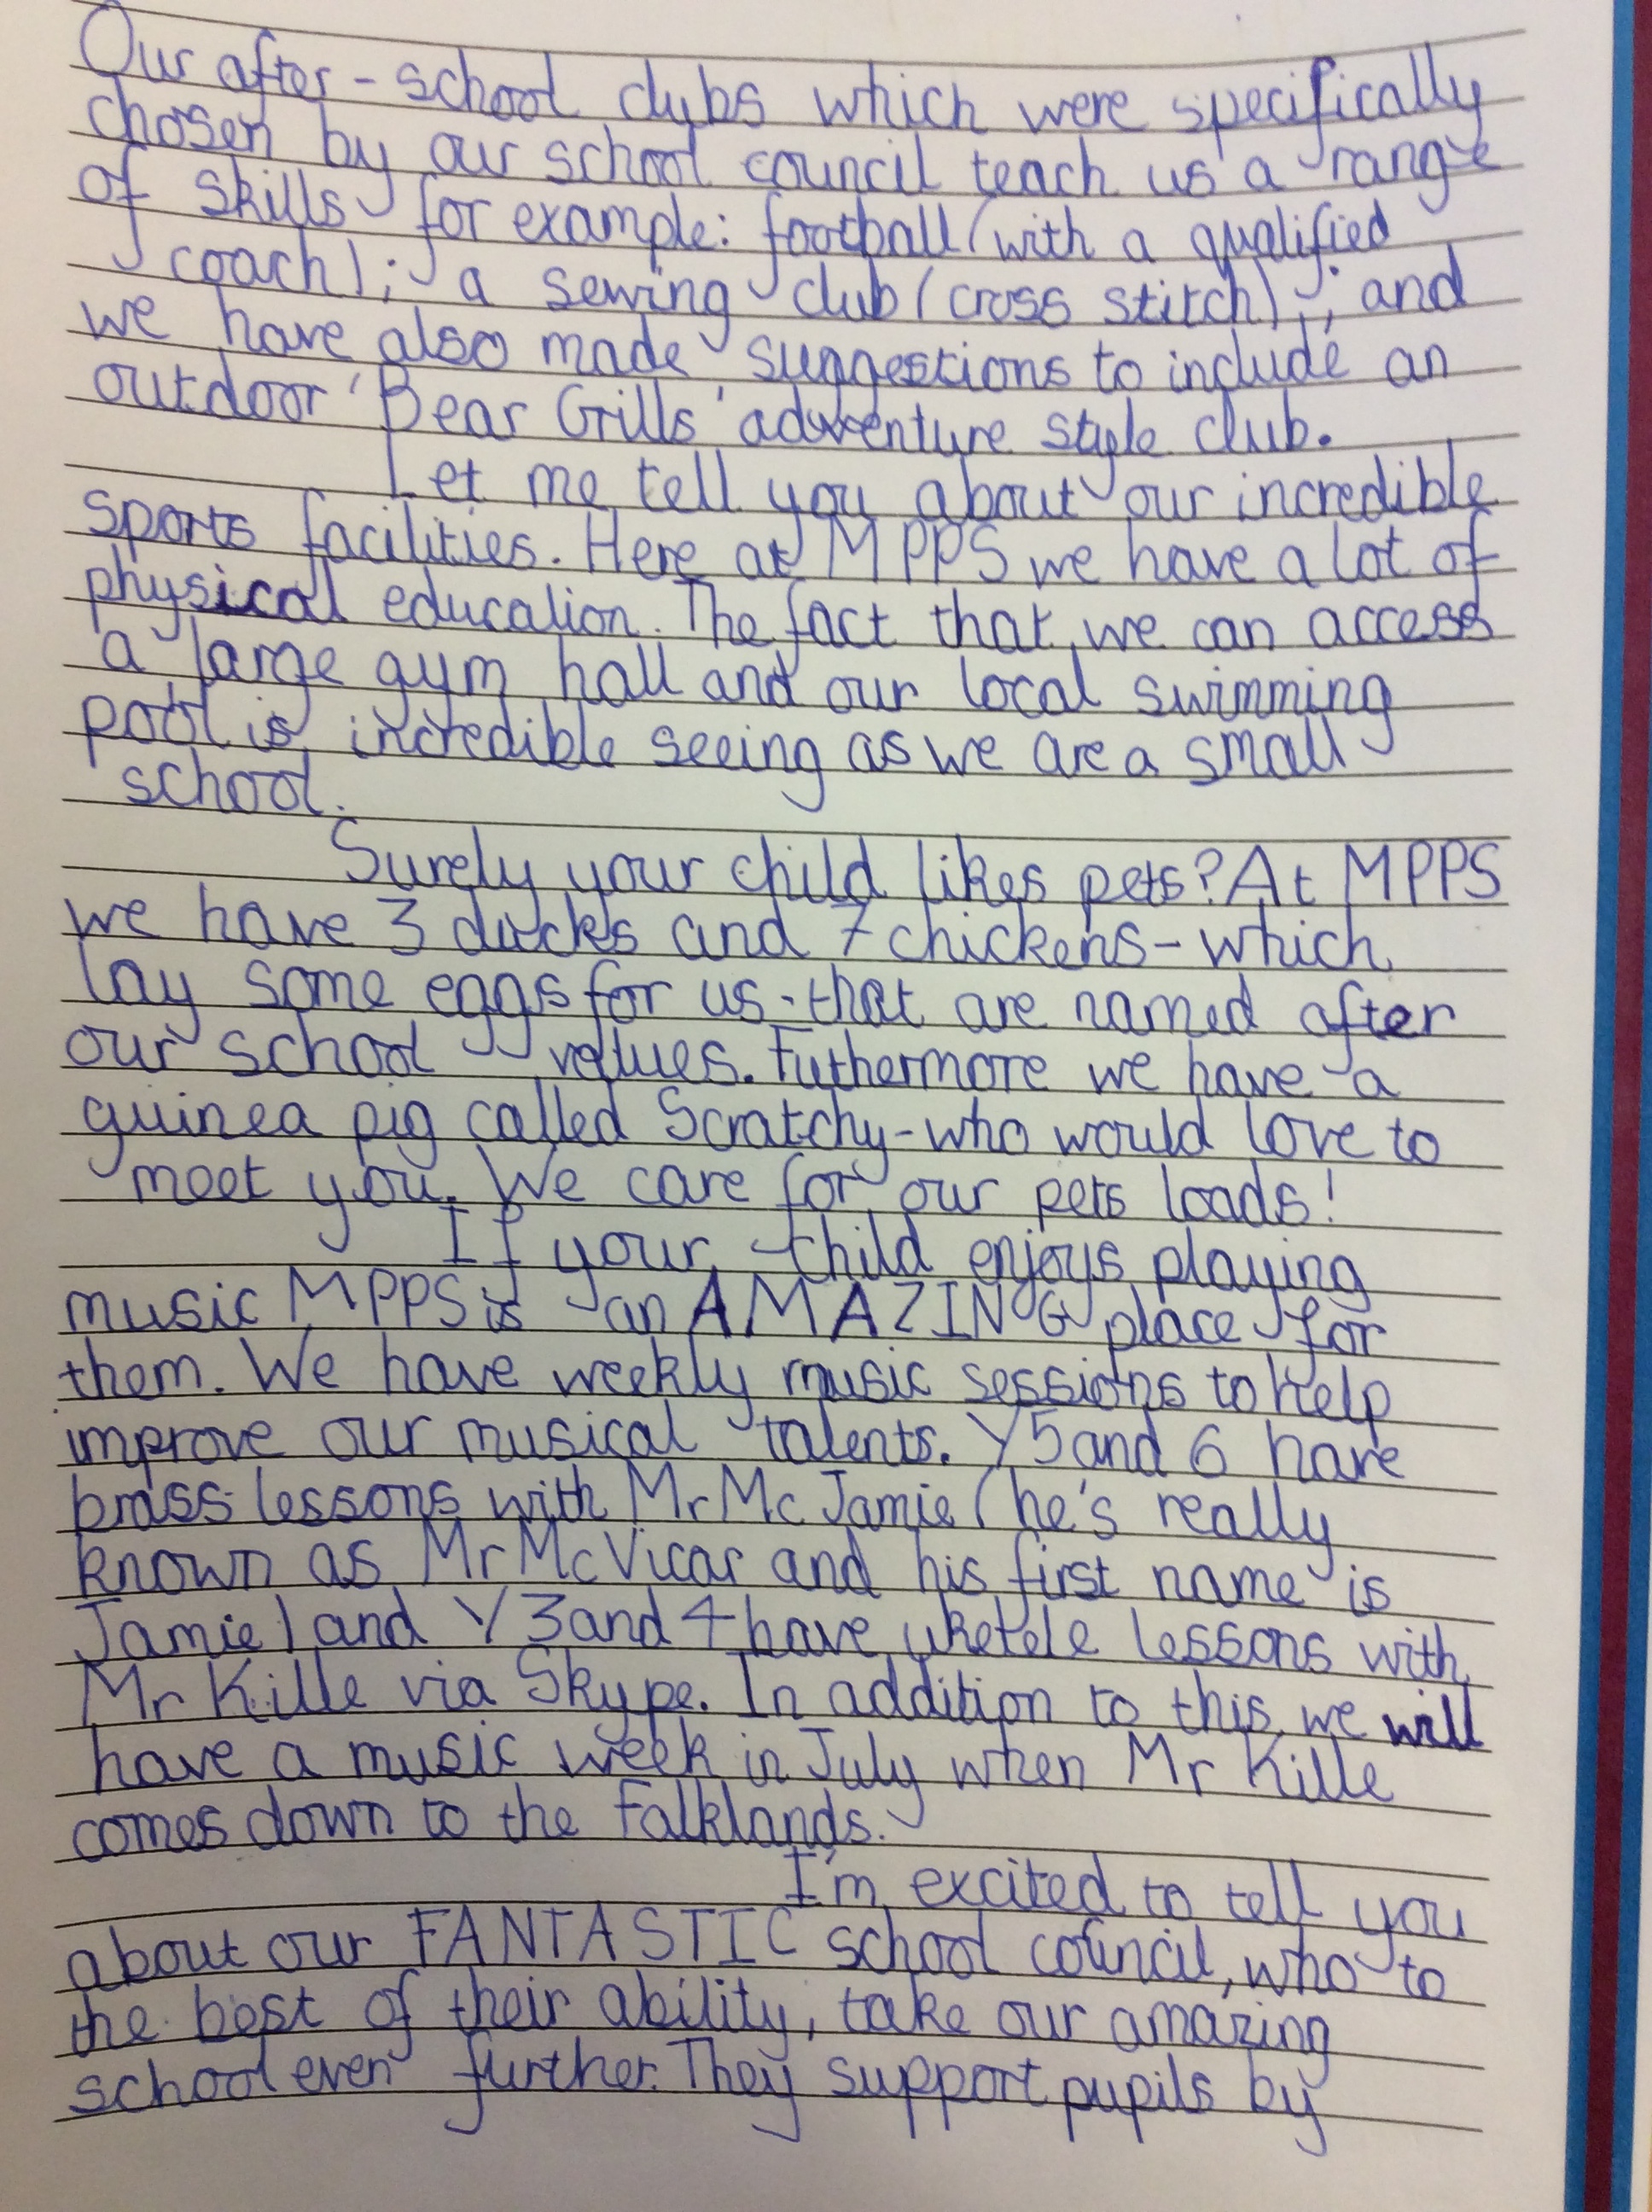 Our after-school clubs which were specifically
chosen by our school council teach us a range
of skills for example: football (with a qualified
coach); a sewing club (cross stitch); and
we have also made suggestions to include an
outdoor 'Bear Grills' adventure style club.
Let me tell you about our incredible
sports facilities. Here at MPPS we have a lot of
physical education. The fact that we can access
a large gym hall and our local swimming
pool is incredible seeing as we are a small
school.
Surely your child likes pets? At MPPS
we have 3 ducks and 7 chickens - which
lay some eggs for us - that are named after
our school values. Futhermore we have a
guinea pig called Scratchy - who would love to
meet you. We care for our pets loads!
If your child enjoys playing
music MPPS is an AMAZING place for
them. We have weekly music sessions to help
improve our musical talents. Y5 and 6 have
brass lessons with Mr McJamie (he's really
known as Mr McVicar and his first name is
Jamie) and Y3 and 4 have ukelele lessons with
Mr Kille via Skype. In addition to this, we will
have a music week in July when Mr Kille
comes down to the Falklands.
I'm excited to tell you
about our FANTASTIC school council, who to
the best of their ability, take our amazing
school even further. They support pupils by